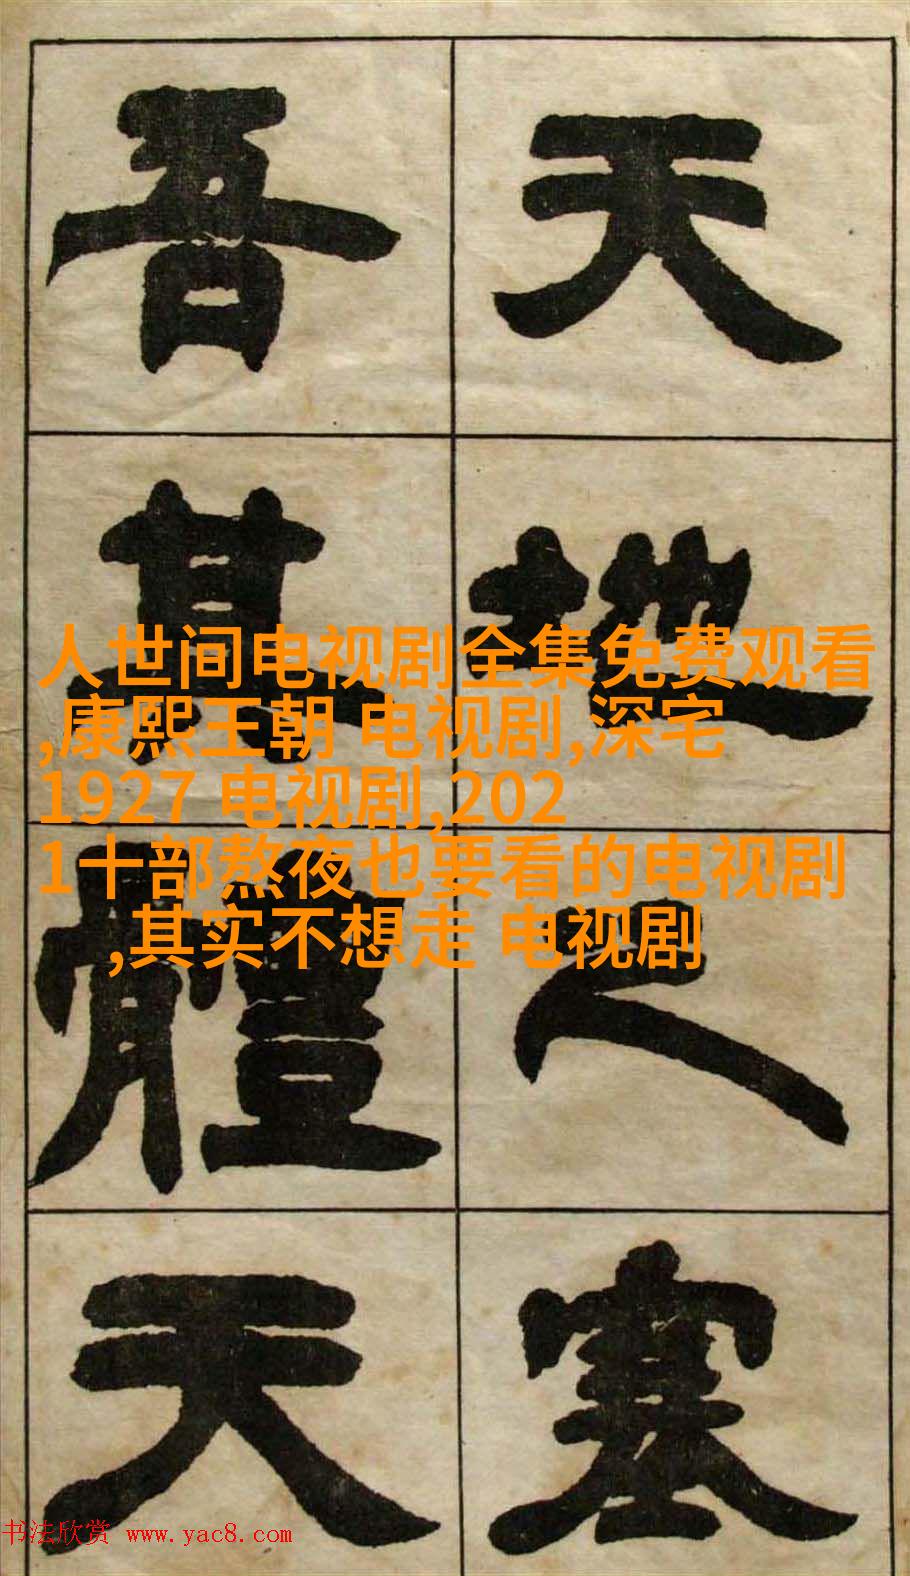 天地之塞
吾其體天
人世间电视剧全集免费观看
,康熙王朝 电视剧,深宅
1927 电视剧,202
1十部熬夜也要看的电视剧
,其实不想走 电视剧
书法欣赏 www.yac8.com